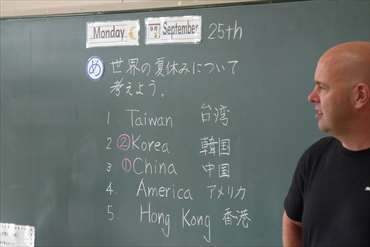 Monday 9月 September 25th
め 世界の夏休みについて
考えよう。
1 Taiwan 台湾
2 ②Korea 韓国
3 ①China 中国
4. America アメリカ
5. Hong Kong 香港